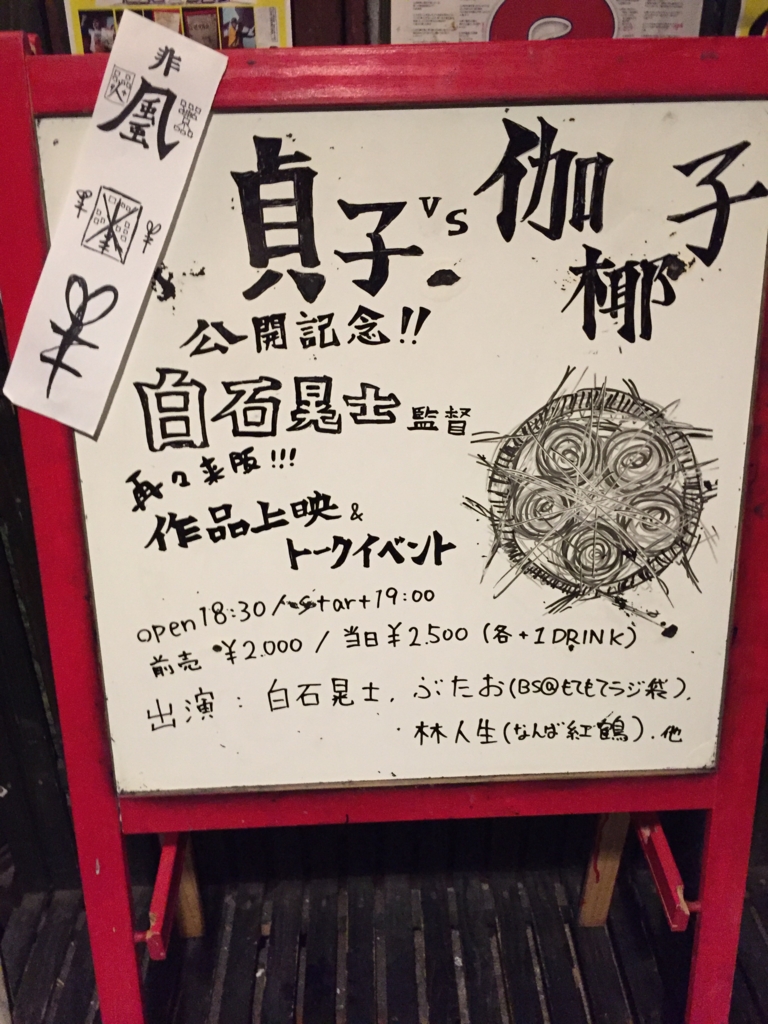 非
貞子 vs 伽椰子
公開記念!!
白石晃士 監督
再び来阪!!!
作品上映 &
トークイベント
open 18:30 / start 19:00
前売 ¥2.000 / 当日 ¥2.500 (各+1DRINK)
出演：白石晃士、ぶたお(BS@もてもてラジ袋)、
林人生(なんば紅鶴)、他